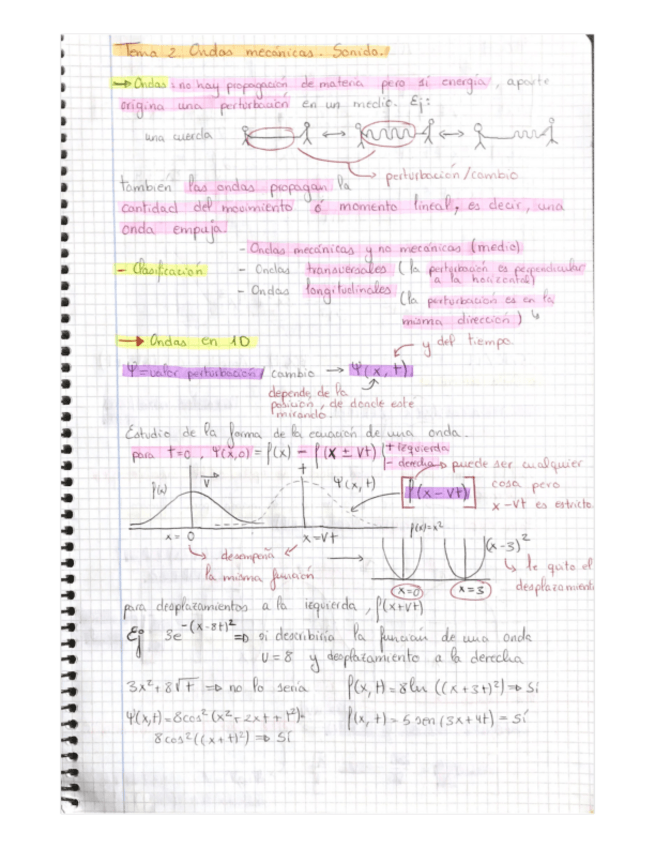 Tema 2 Ondas mecánicas. Sonido.
→ Ondas: no hay propagación de materia pero sí energía, aparte
origina una perturbación en un medio. Ej:
una cuerda
perturbación/cambio
también las ondas propagan la
cantidad del movimiento ó momento lineal, es decir, una
onda empuja
- Ondas mecánicas y no mecánicas (medio)
- Clasificación - Ondas transversales (la perturbación es perpendicular
a la horizontal)
- Ondas longitudinales (la perturbación es en la
misma dirección)
→ Ondas en 1D
y del tiempo
Ψ = valor perturbación / cambio → Ψ(x, t)
depende de la
posición, de donde esté
mirando.
Estudio de la forma de la ecuación de una onda.
para t=0, Ψ(x,0) = f(x) - f(x ± vt) (+ izquierda
- derecha → puede ser cualquier
cosa pero
x - vt es estricto
f(x) v Ψ(x,t) [f(x-vt)]
x = 0 x = vt
f(x)=x² (x-3)²
desempeña
la misma función
x=0 x=3
le quto el
desplazamient
para desplazamientos a la izquierda, f(x+vt)
Ej 3e^-(x-8t)² ⇒ si describiría la función de una onda
v = 8 y desplazamiento a la derecha
3x² + 8√t ⇒ no lo sería f(x, t) = 8 ln ((x+3t)²) ⇒ Sí
Ψ(x,t) = 8cos² (x² + 2xt + t²) = f(x, t) = 5 sen (3x + 4t) = Sí
8cos² ((x+t)²) ⇒ Sí